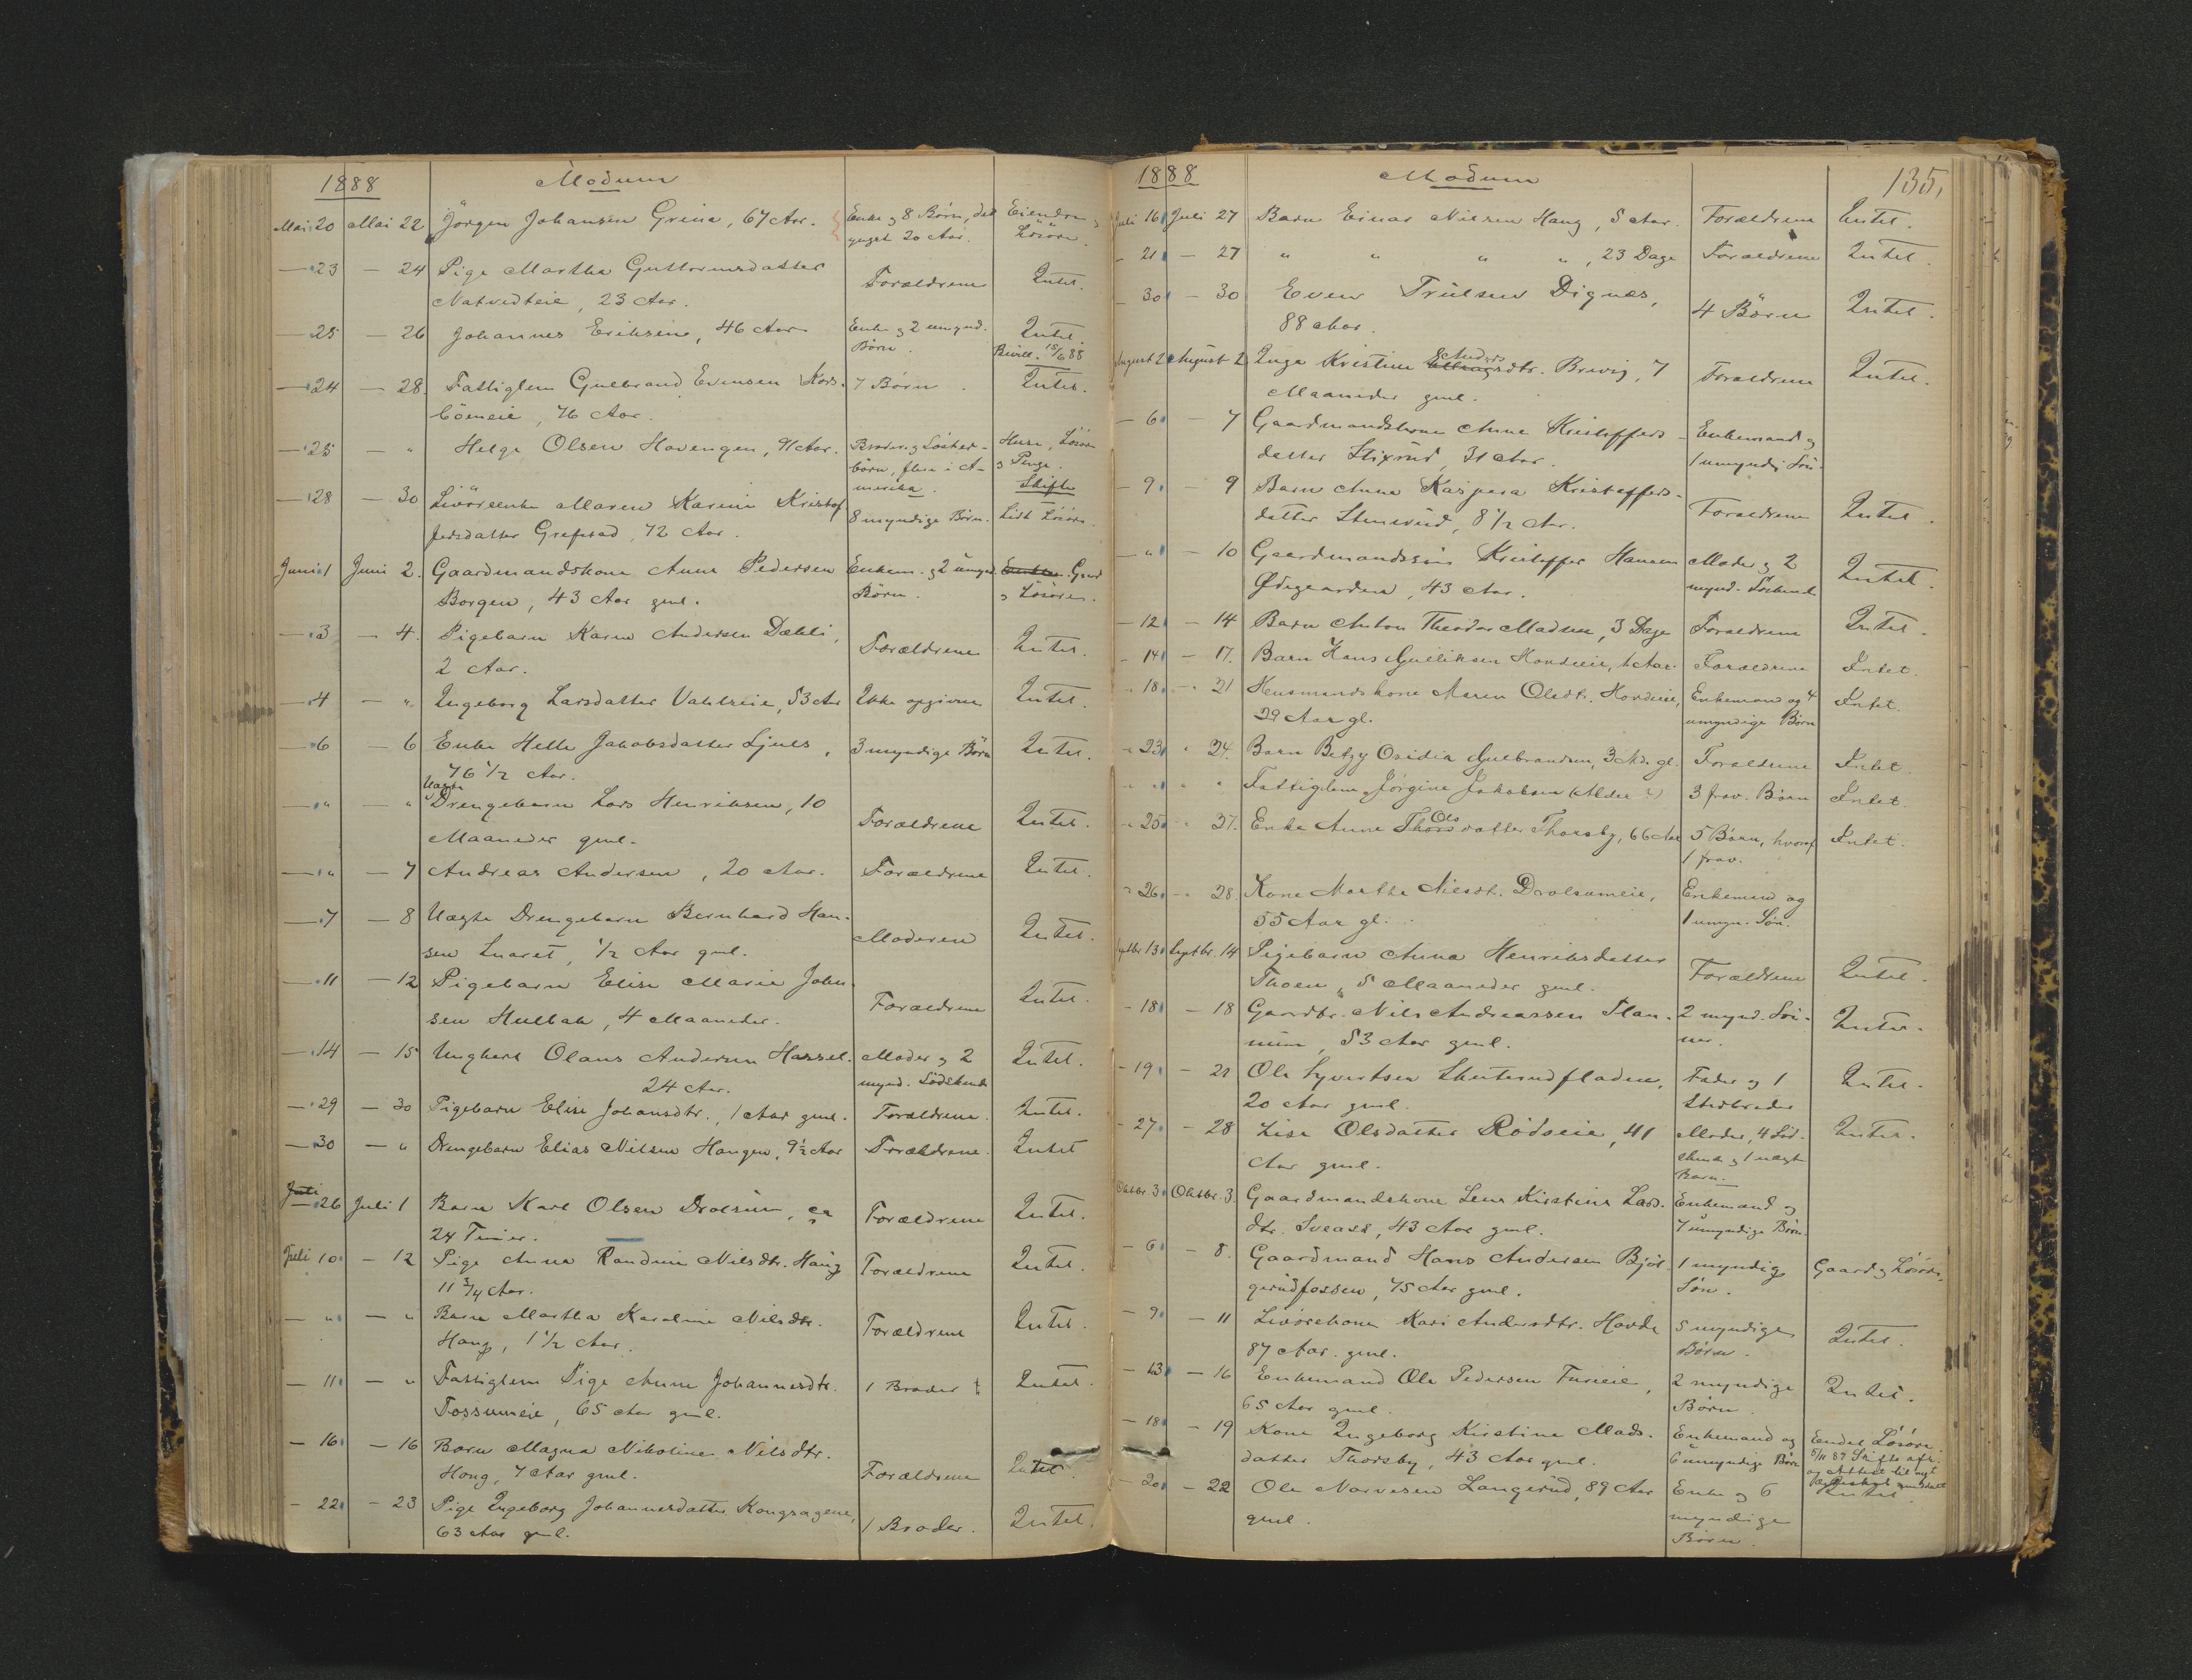 1888 Modum
Mai 20 Mai 22 Jörgen Johansen Grina, 67 Aar. Enke og 8 Börn, det Eiendom og
yngst 20 Aar. Lösöre.
— 23 — 24 Pige Martha Guttormsdatter Forældrene Intet.
Natvedteie, 23 Aar.
— 25 — 26 Johannes Eriksen, 46 Aar Enke og 2 umynd. Intet.
Börn. Bevill. 15/6 88
— 24 — 28. Fattiglem Gulbrand Evensen Kors- 7 Börn. Intet.
böeneie, 76 Aar.
— 25 — " Helge Olsen Hovengen, 91 Aar. Broder- og Söster- Huse, Lösöre
börn, flere i A- og Penge.
merika. Skifte
— 28 — 30 Livöreenke Maren Karine Kristof- 8 myndige Börn. Lidt Lösöre.
fersdatter Grefsrud, 72 Aar.
Juni 1 Juni 2. Gaardmandskone Anne Pedersen Enkem. og 2 umynd. Gaard
Borgen, 43 Aar gml. Börn. og Lösöre.
— 3 — 4. Pigebarn Karen Andersen Dæhli, Forældrene Intet.
2 Aar.
— 4 — " Ingeborg Larsdatter Vahlseie, 53 Aar Ikke opgivne Intet.
— 6 — 6 Enke Helle Jakobsdatter Ljues, 3 myndige Börn Intet.
76 1/2 Aar.
Uægte
— " — " Drengebarn Lars Henriksen, 10 Forældrene Intet.
Maaneder gml.
— " — 7 Andreas Andersen, 20 Aar. Forældrene Intet.
— 7 — 8 Uægte Drengebarn Bernhard Han- Moderen Intet.
sen, 1/2 Aar gml.
— 11 — 12 Pigebarn Elise Marie Johan- Forældrene Intet.
sen Hulbak, 4 Maaneder.
— 14 — 15 Ungkarl Olaus Andersen Hassel. Moder og 2 Intet.
24 Aar. mynd. Södskende
— 29 — 30 Pigebarn Elise Johansdtr., 1 Aar gml. Forældrene. Intet.
— 30 — " Drengebarn Elias Nilsen Haugen, 9 1/2 Aar Forældrene. Intet
Juli
— 26 Juli 1 Barn Karl Olsen Drolsum, ca Forældrene Intet.
24 Timer.
Juli 10 — 12 Pige Anna Randine Nilsdtr. Haug Forældrene Intet.
11 3/4 Aar.
— " — " Barn Martha Karoline Nilsdtr. Forældrene Intet.
Haug, 1 1/2 Aar.
— 11 — " Fattiglem Pige Anne Johannesdtr. 1 Broder Intet.
Fossumeie, 65 Aar gml.
— 16 — 16 Barn Magna Nikoline Nilsdtr. Forældrene Intet.
Haug, 7 Aar gml.
— 22 — 23 Pige Ingeborg Johannesdatter Kongsagene, 1 Broder. Intet.
63 Aar gml.
1888 Modum 135.
Juli 16 Juli 27 Barn Einar Nilsen Haug, 5 Aar. Forældrene Intet.
— 21 — 27 " " " ", 23 Dage Forældrene Intet.
— 30 — 30 Even Trulsen Dignæs, 4 Börn Intet.
88 Aar.
August 2 August 2 Inga Kristine Anders dtr. Brevig, 7 Forældrene Intet.
Maaneder gml.
— 6 — 7 Gaardmandskone Anne Kristoffers- Enkemand og
datter Stixrud, 31 Aar. 1 umyndig Sön.
— 9. — 9 Barn Anna Kaspara Kristoffers- Forældrene Intet.
datter Stensrud, 8 1/2 Aar.
— " — 10 Gaardmandssön Kristoffer Hansen Moder og 2 Intet.
Ødegaarden, 43 Aar. mynd. Södskende
— 12 — 14 Barn Anton Theodor Madsen, 3 Dage Forældrene Intet.
— 14 — 17. Barn Hans Gulliksen Hovdeeie, 1 Aar. Forældrene Intet.
— 18. — 21 Husmandskone Maren Olsdtr. Hovdeeie, Enkemand og 4 Intet.
29 Aar gl. umyndige Börn
— 23 " 24. Barn Betzy Osidia Gulbrandsen, 3 Md. gl. Forældrene Intet.
" " " Fattiglem Jörgine Jakobsen (Alder ?) 3 frav. Börn Intet.
Ols
— 25 " 27. Enke Anne datter Thorsby, 66 Aar 5 Börn, hvoraf Intet.
1 frav.
— 26. — 28. Kone Marthe Nilsdt. Drolsumeie, Enkemand og
55 Aar gl. 1 umyn. Sön.
Septbr. 13. Septbr. 14 Pigebarn Anna Henriksdatter Forældrene Intet.
Thoen, 5 Maaneder gml.
— 18 — 18 Gaardbr. Nils Andreassen Flan- 2 mynd. Sön- Intet.
num, 53 Aar gml. ner.
— 19 — 21 Ole Syvertsen Skuterudfladen, Fader og 1 Intet.
20 Aar gml. Stedbroder
— 27. — 28 Lise Olsdatter Rödseie, 41 Moder, 4 Söd- Intet.
Aar gml. skende og 1 uægte
Barn.
Oktbr. 3. Oktbr. 3. Gaardmandskone Lena Kirstine Lars- Enkemand og
dtr. Sveaas, 43 Aar gml. 7 umyndige Börn.
— 6 — 8. Gaardmand Hans Andersen Bjöl- 1 myndig Gaard og Lösöre.
gerudfossen, 75 Aar gml. Sön.
— 9. — 11 Livörekone Kari Andersdtr. Hovde 5 myndige Intet.
87 Aar. gml. Börn.
— 13 — 16 Enkemand Ole Pedersen Furueie, 2 myndige Intet.
65 Aar gml. Börn.
— 18 — 19 Kone Ingeborg Kirstine Mads- Enkemand og Endel Lösöre.
datter Thorsby, 43 Aar gml. 6 umyndige Börn 5/11 89 Skifte afh.
og Attest til nyt
Ægteskab
— 20 — 22 Ole Narvesen Langerud, 89 Aar Enke og 6 Intet.
gml. myndige
Börn.